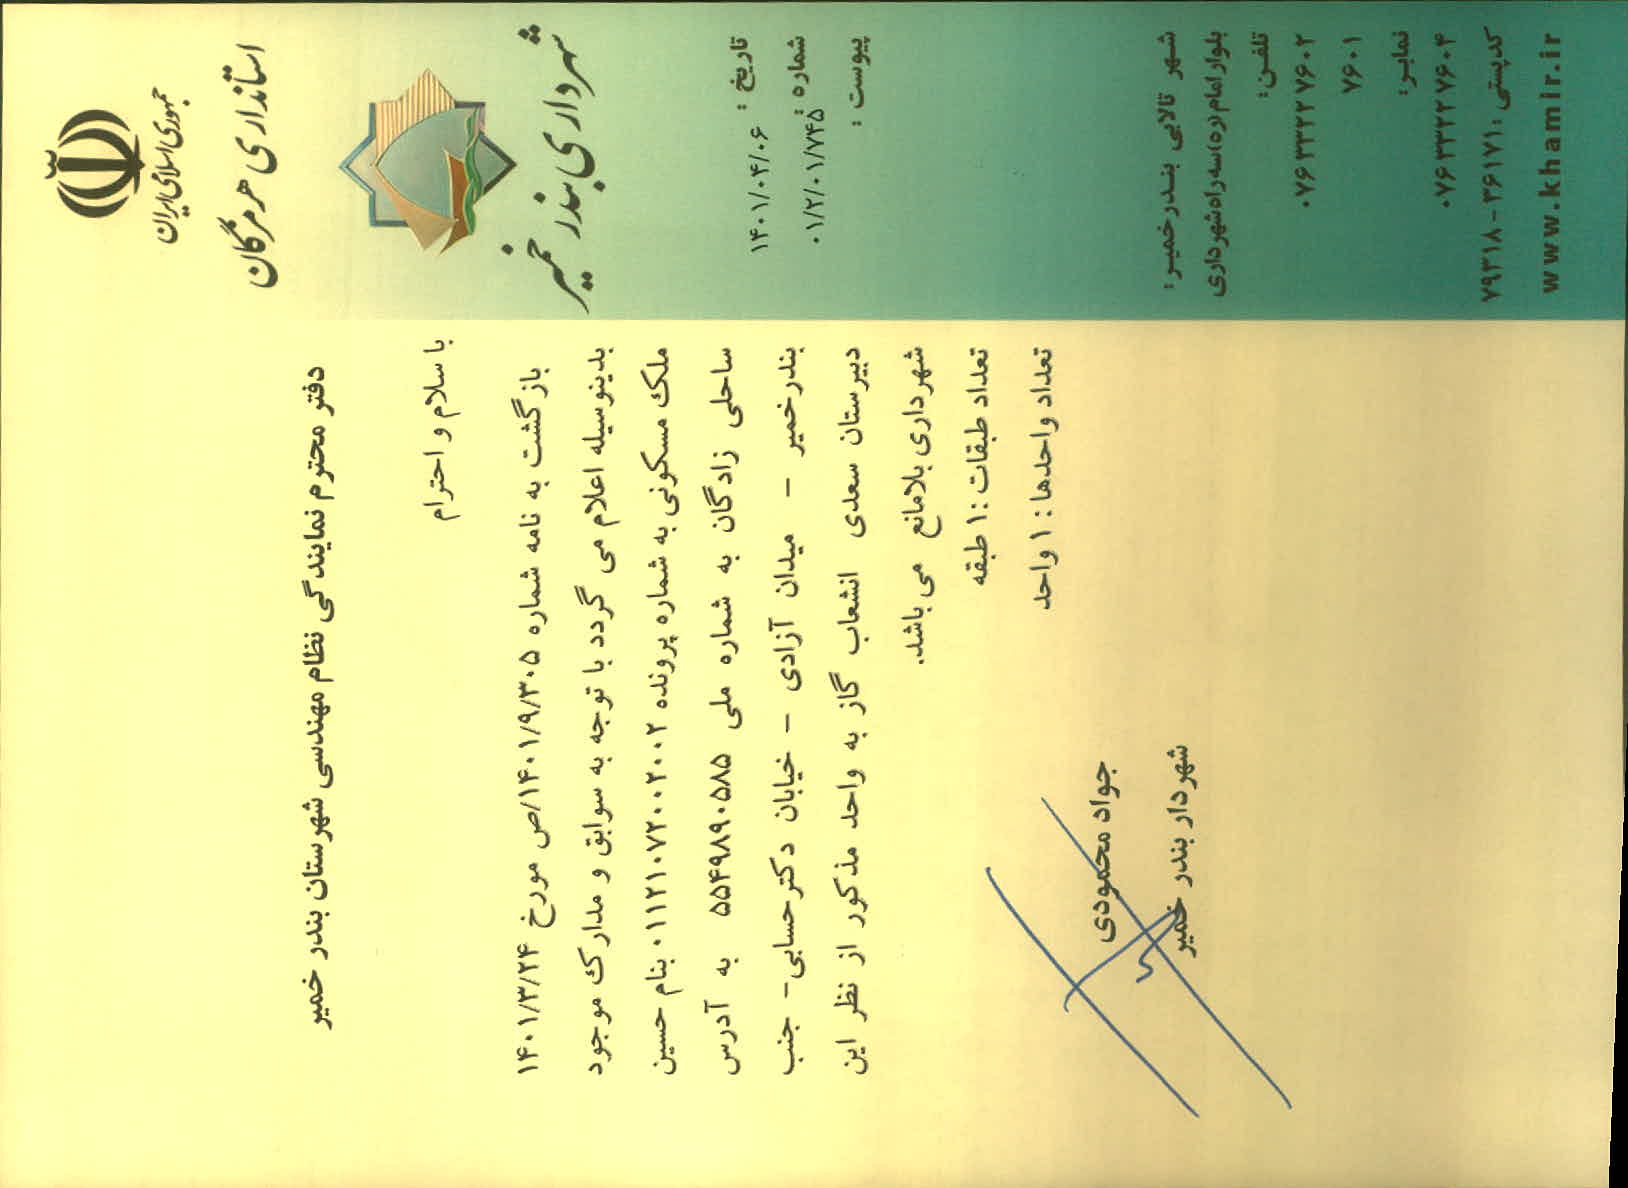 جمهوری اسلامی ایران
استانداری هرمزگان
شهرداری بندر خمیر
تاریخ : ۱۴۰۱/۰۴/۰۶
شماره : ۰۱/۲/۰۱/۷۴۵
پیوست :
دفتر محترم نمایندگی نظام مهندسی شهرستان بندر خمیر
با سلام و احترام
بازگشت به نامه شماره ۱۴۰۱/۹/۳۰۵/ص مورخ ۱۴۰۱/۳/۲۴
بدینوسیله اعلام می گردد با توجه به سوابق و مدارک موجود
ملک مسکونی به شماره پرونده ۰۱۱۲۱۰۷۲۰۰۲۰۰۰۲ بنام حسین
ساحلی زادگان به شماره ملی ۵۵۴۹۸۹۰۵۸۵ به آدرس
بندرخمیر – میدان آزادی – خیابان دکترحسابی- جنب
دبیرستان سعدی انشعاب گاز به واحد مذکور از نظر این
شهرداری بلامانع می باشد.
تعداد طبقات :۱ طبقه
تعداد واحدها : ۱ واحد
جواد محمودی
شهردار بندر خمیر
شهر تالابی بندرخمیر:
بلوار امام(ره)سه راه شهرداری
تلفن:
۰۷۶۳۳۲۲۷۶۰۲
۷۶۰۱
نمابر:
۰۷۶۳۳۲۲۷۶۰۴
کدپستی ۳۶۱۷۱ - ۷۹۳۱۸
www.khamir.ir